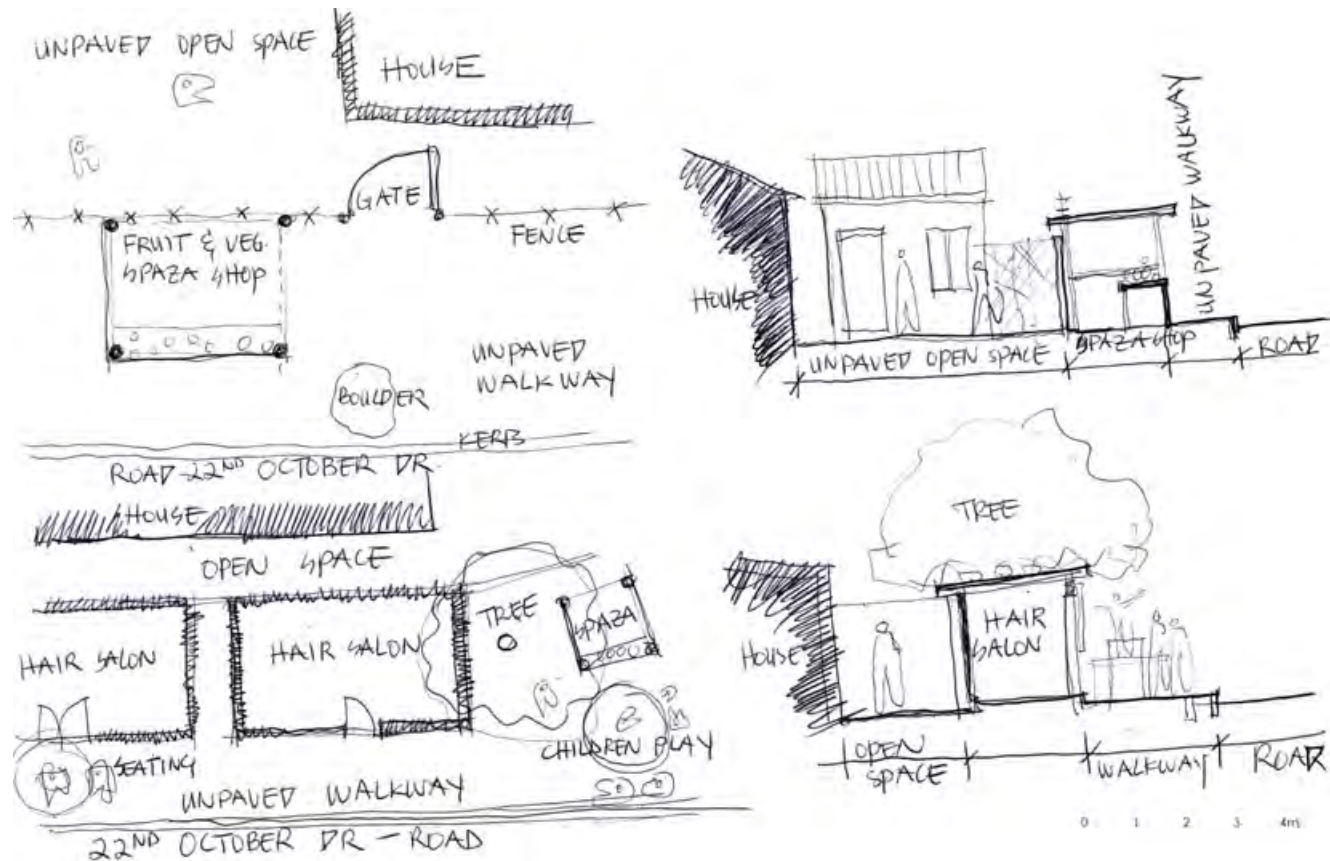 UNPAVED OPEN SPACE
HOUSE
GATE
FENCE
FRUIT & VEG.
SPAZA SHOP
UNPAVED
WALKWAY
BOULDER
KERB
ROAD-22ND OCTOBER DR.
HOUSE
OPEN SPACE
HAIR SALON
HAIR SALON
TREE
SPAZA
SEATING
CHILDREN PLAY
UNPAVED WALKWAY
22ND OCTOBER DR - ROAD
UNPAVED WALKWAY
HOUSE
UNPAVED OPEN SPACE
SPAZA SHOP
ROAD
TREE
HOUSE
HAIR
SALON
OPEN
SPACE
WALKWAY
ROAD
0 1 2 3 4m